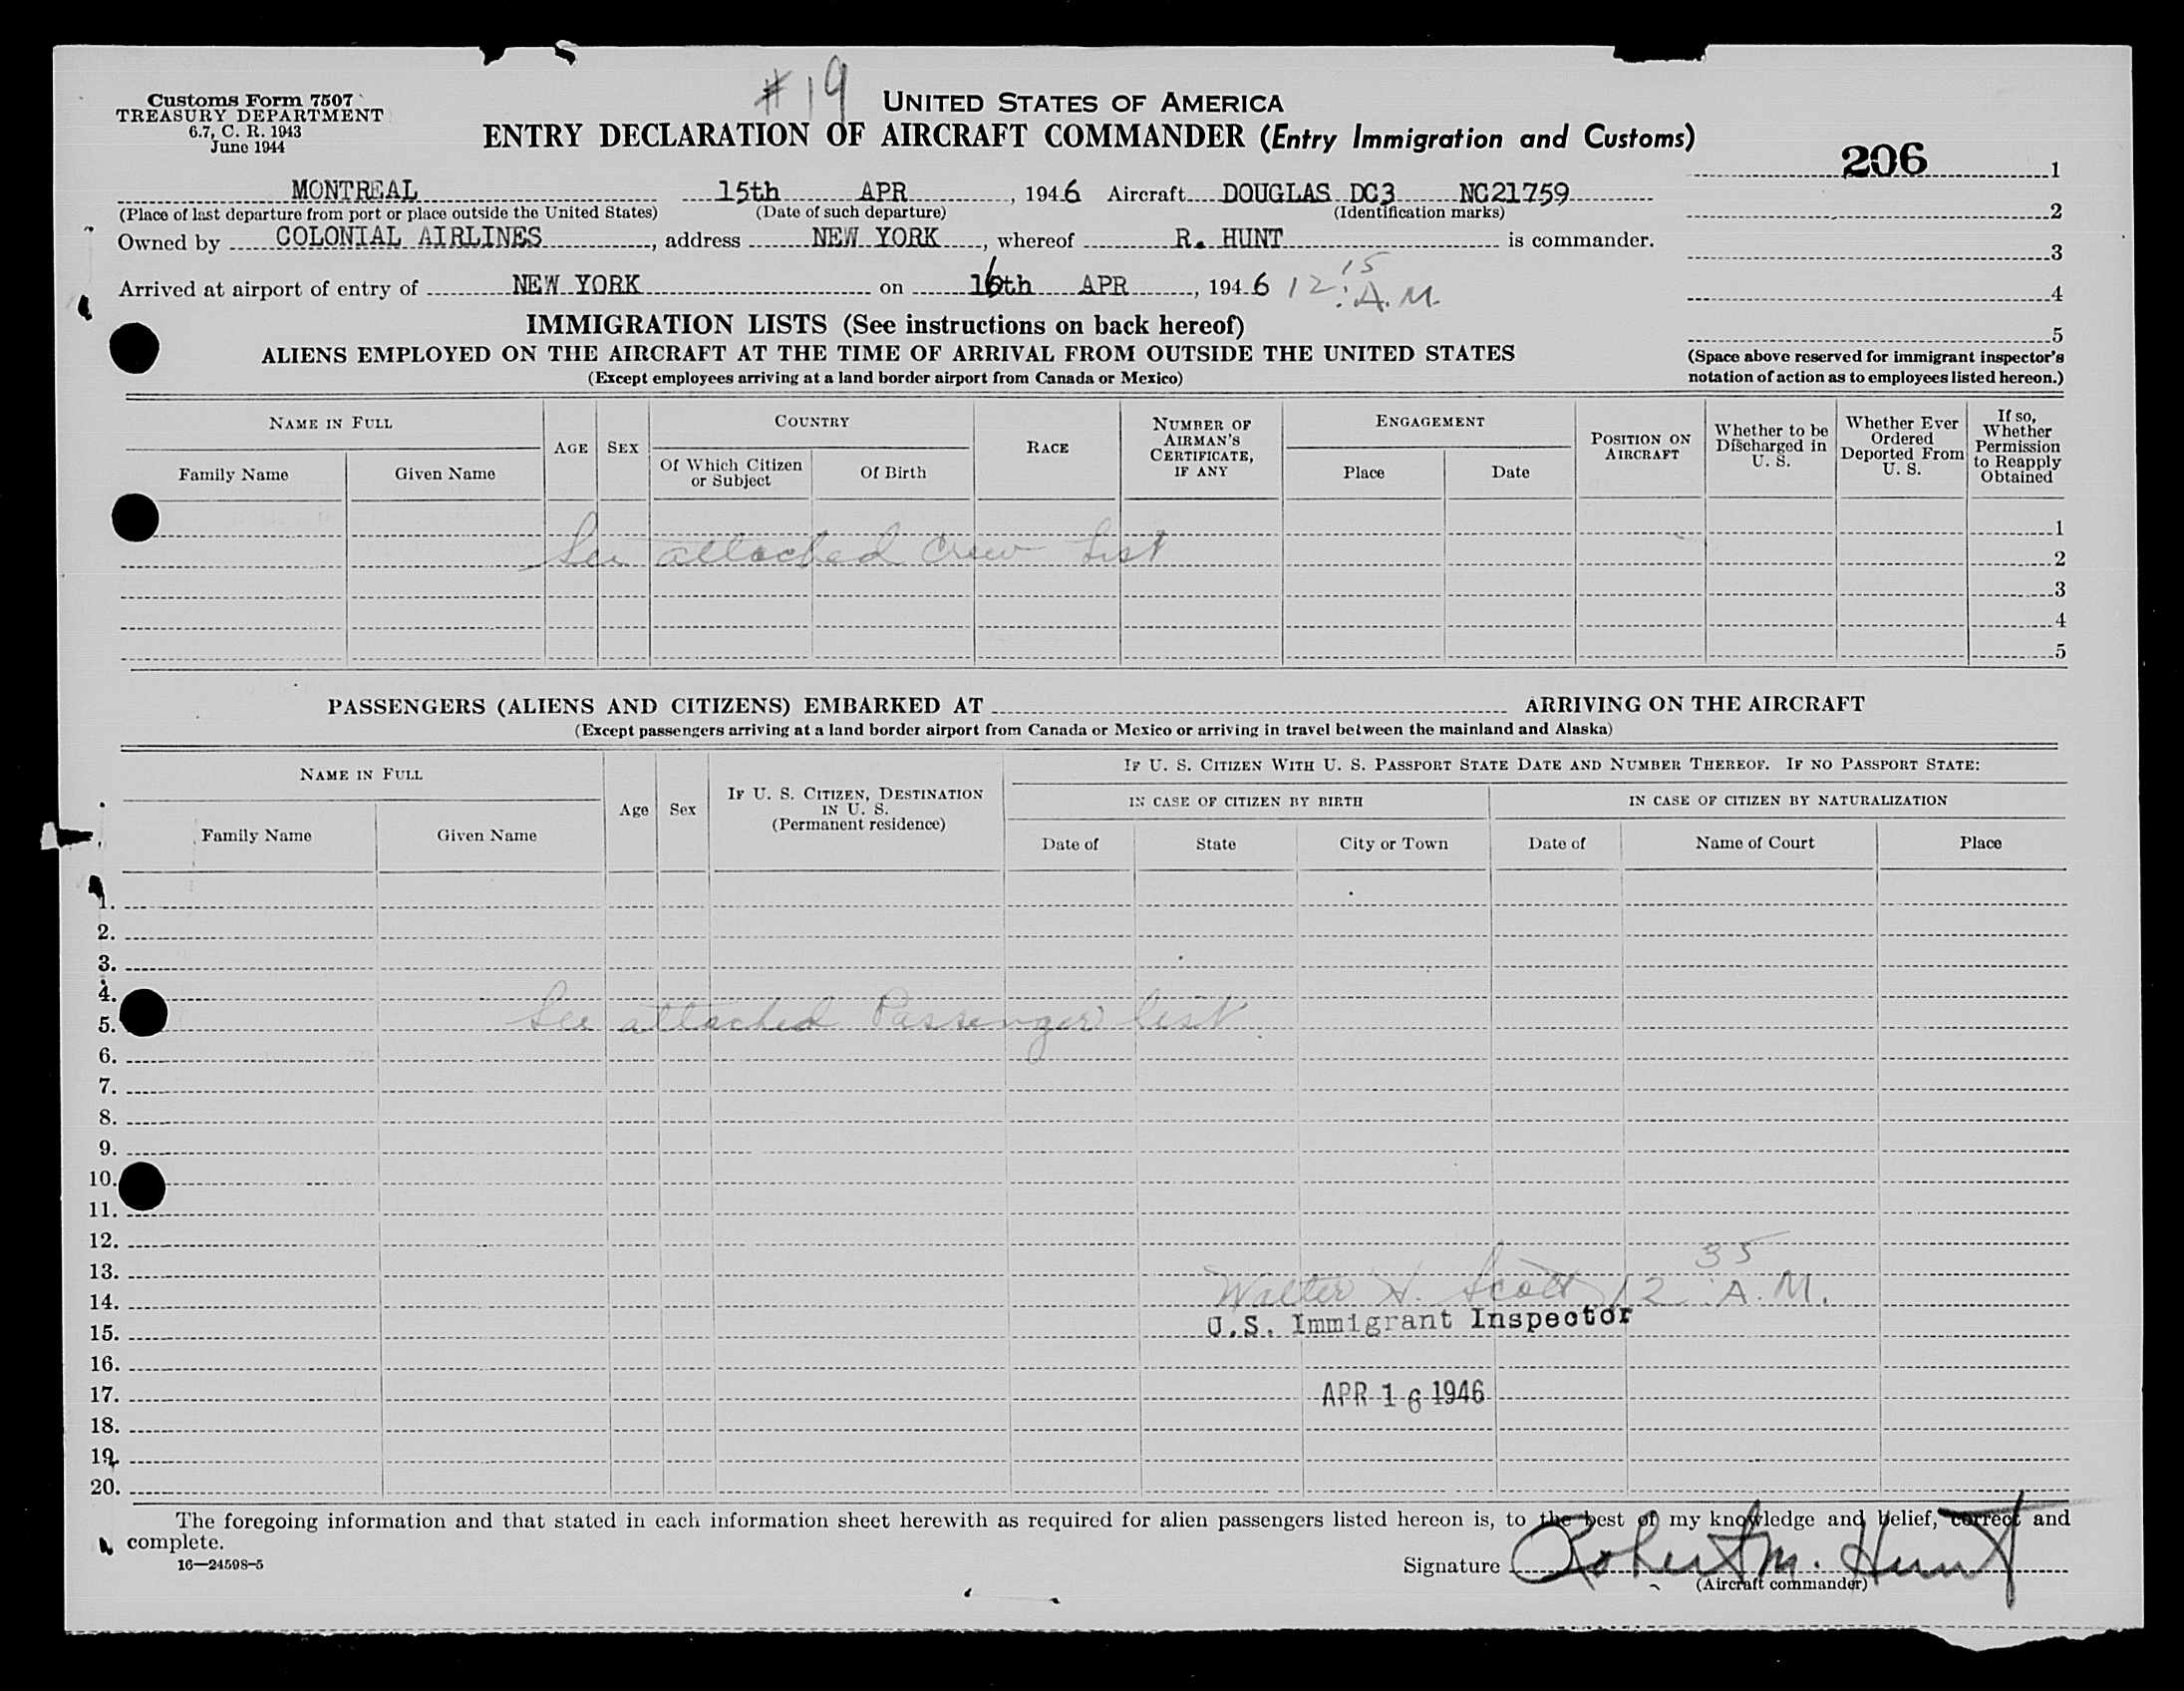 # 19
Customs Form 7507
TREASURY DEPARTMENT
6.7, C. R. 1943
June 1944
UNITED STATES OF AMERICA
ENTRY DECLARATION OF AIRCRAFT COMMANDER (Entry Immigration and Customs)
206 1
2
3
4
5
(Space above reserved for immigrant inspector's
notation of action as to employees listed hereon.)
MONTREAL 15th APR, 1946 Aircraft DOUGLAS DC3 NC21759
(Place of last departure from port or place outside the United States) (Date of such departure) (Identification marks)
Owned by COLONIAL AIRLINES, address NEW YORK, whereof R. HUNT is commander.
Arrived at airport of entry of NEW YORK on 16th APR, 1946 12:15 A.M.
IMMIGRATION LISTS (See instructions on back hereof)
ALIENS EMPLOYED ON THE AIRCRAFT AT THE TIME OF ARRIVAL FROM OUTSIDE THE UNITED STATES
(Except employees arriving at a land border airport from Canada or Mexico)
NAME IN FULL
Family Name Given Name
AGE SEX
COUNTRY
Of Which Citizen or Subject
Of Birth
RACE
NUMBER OF AIRMAN'S CERTIFICATE, IF ANY
ENGAGEMENT
Place Date
POSITION ON AIRCRAFT
Whether to be Discharged in U. S.
Whether Ever Ordered Deported From U. S.
If so, Whether Permission to Reapply Obtained
1
See attached Crew List 2
3
4
5
PASSENGERS (ALIENS AND CITIZENS) EMBARKED AT ARRIVING ON THE AIRCRAFT
(Except passengers arriving at a land border airport from Canada or Mexico or arriving in travel between the mainland and Alaska)
NAME IN FULL
Family Name Given Name
Age Sex
IF U. S. CITIZEN, DESTINATION IN U. S.
(Permanent residence)
IF U. S. CITIZEN WITH U. S. PASSPORT STATE DATE AND NUMBER THEREOF. IF NO PASSPORT STATE:
IN CASE OF CITIZEN BY BIRTH IN CASE OF CITIZEN BY NATURALIZATION
Date of State City or Town Date of Name of Court Place
1.
2.
3.
4.
5. See attached Passenger list
6.
7.
8.
9.
10.
11.
12.
13.
14. Walter H. Scott 12:35 A.M.
15. U.S. Immigrant Inspector
16.
17. APR 16 1946
18.
19.
20.
The foregoing information and that stated in each information sheet herewith as required for alien passengers listed hereon is, to the best of my knowledge and belief, correct and
complete.
16—24598-5
Signature Robert M. Hunt
(Aircraft commander)